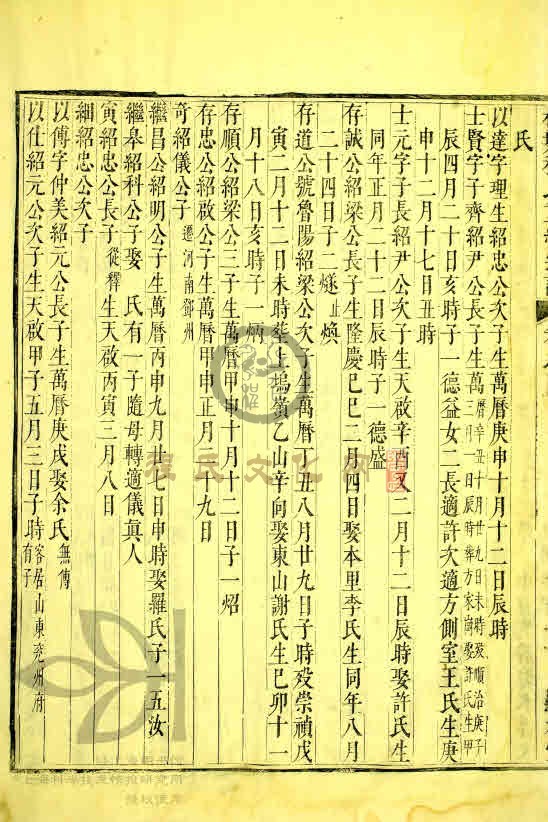 氏
以達字理生紹忠公次子生萬曆庚申十月十二日辰時
士賢字子齊紹尹公長子生萬曆辛丑十月廿九日未時歿順治庚子
三月一日辰時葬方家塢娶許氏生甲
辰四月二十日亥時子一德益女二長適許次適方側室王氏生庚
申十二月十七日丑時
士元字子長紹尹公次子生天啟辛酉又二月十二日辰時娶許氏生
同年正月二十二日辰時子一德盛
存誠公紹梁公長子生隆慶己巳二月四日娶本里李氏生同年八月
二十四日子二燧止煥
存道公號魯陽紹梁公次子生萬曆丁丑八月廿九日子時歿崇禎戊
寅二月十二日未時葬上塢嶺乙山辛向娶東山謝氏生己卯十一
月十八日亥時子一炳
存順公紹梁公三子生萬曆甲申十月十二日子一炤
存忠公紹啟公子生萬曆甲申正月二十九日
奇紹儀公子遷河南鄧州
繼昌公紹明公子生萬曆丙申九月廿七日申時娶羅氏子一五汝
繼皋紹科公子娶 氏有一子隨母轉適儀真人
寅紹忠公長子從釋生天啟丙寅三月八日
細紹忠公次子
以傳字仲美紹元公長子生萬曆庚戌娶余氏無傳
以仕紹元公次子生天啟甲子五月三日子時客居山東兖州府
有子
程氏文化網